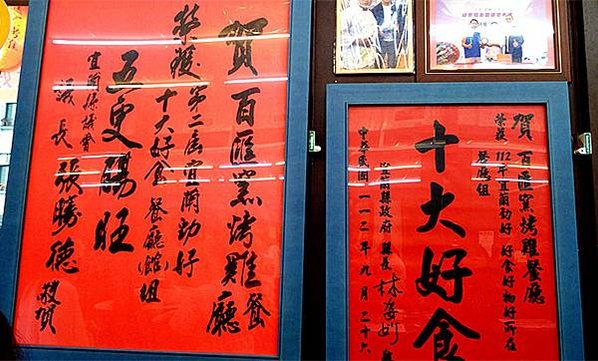 賀 百匯窯烤雞餐廳
榮獲第二屆宜蘭勁好
十大好食 餐廳(館)組
五更腸旺
宜蘭縣議會
議長 張勝德 敬賀
賀 百匯窯烤雞餐廳
榮獲 112年宜蘭勁好 好食好物好所在
餐廳組
十大好食
宜蘭縣政府 縣長 林姿妙
中華民國一一二年九月二十六